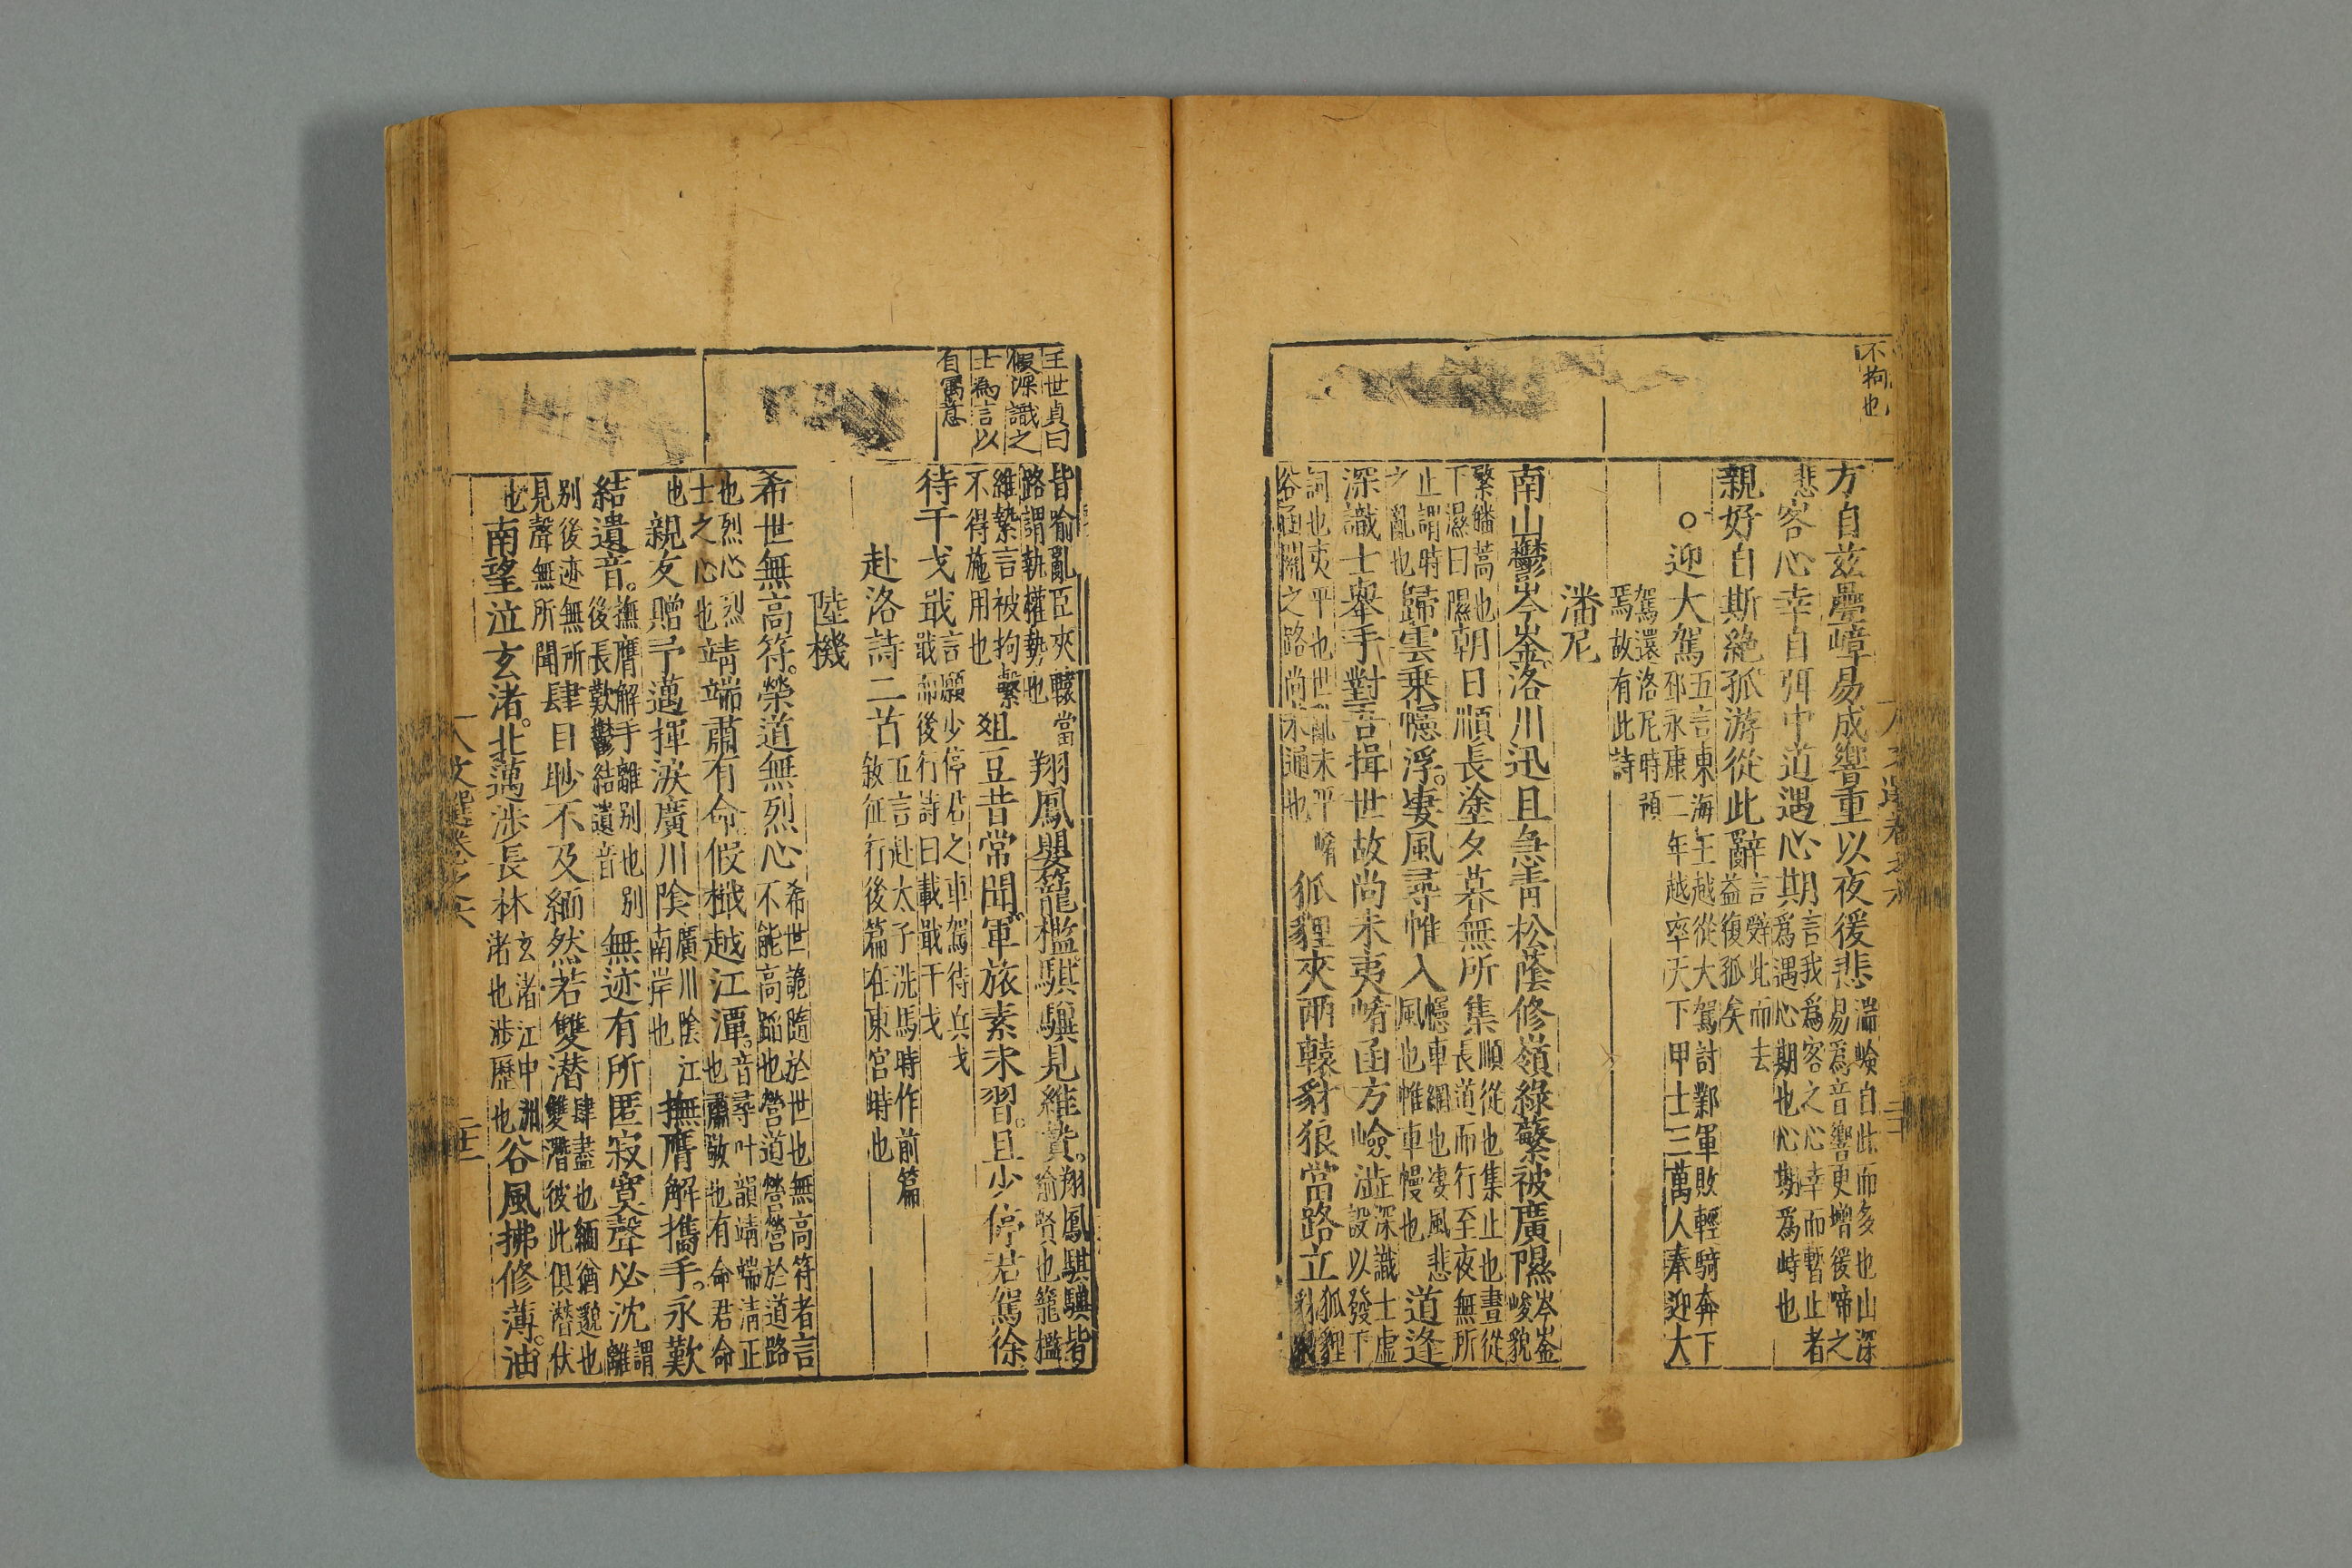 不拘也
方自茲疊嶂易成響重以夜猨悲湍嶮自此而多也山深易爲音響更增猨啼之
悲客心幸自弭中道遇心期言我爲客之心幸而暫止者爲遇心期也心期爲時也
親好自斯絶孤游從此辭言辤此而去益復孤矣
○迎大駕五言東海王越從大駕討鄴軍敗輕騎奔下邳永康二年越率天下甲士三萬人奉迎大
駕還洛尼時預焉故有此詩
潘尼
南山鬱岑崟洛川迅且急青松蔭修嶺綠蘩被廣隰岑崟峻貌
蘩皤蒿也下濕曰隰朝日順長塗夕暮無所集順從也集止也晝從長道而行至夜無所
止謂時之亂也歸雲乗幰浮。凄風尋帷入幰車網也凄風悲風也帷車幔也道逢
深識士舉手對吾揖世故尚未夷崤函方嶮澁深識士虛設以發下
詞也夷平也世亂未平崤谷函關之路尚未通也狐貍夾兩轅豺狼當路立狐貍豺狼
王世貞曰
假深識之
士爲言以
自寓意
皆喻亂臣夾轅當路謂執權勢也翔鳳嬰籠檻騏驥見維縶。翔鳳騏驥皆喻賢也籠檻
維縶言被拘繫不得施用也俎豆昔常聞軍旅素未習。且少停君駕徐
待干戈戢言願少停君之車駕待兵戈戢而後行詩曰載戢干戈
赴洛詩二首五言赴太子洗馬時作前篇敘征行後篇在東宮時也
陸機
希世無高符。榮道無烈心希世詭隨於世也無高符者言不能高蹈也營道營營於道路
也烈心烈士之心也靖端肅有命假檝越江潭。音尋叶韻靖端清正也肅敬也有命君命
也親友贈予邁揮淚廣川陰廣川陰江南岸也撫膺解攜手。永歎
結遺音。撫膺解手離别也别後長歎鬱結遺音無迹有所匿寂寞聲必沈謂離
别後迹無所見聲無所聞肆目眇不及緬然若雙潜肆盡也緬猶邈也雙潛彼此俱潛伏
也南望泣玄渚。北邁涉長林玄渚江中洲渚也涉歷也谷風拂修薄。油
六文選卷之六